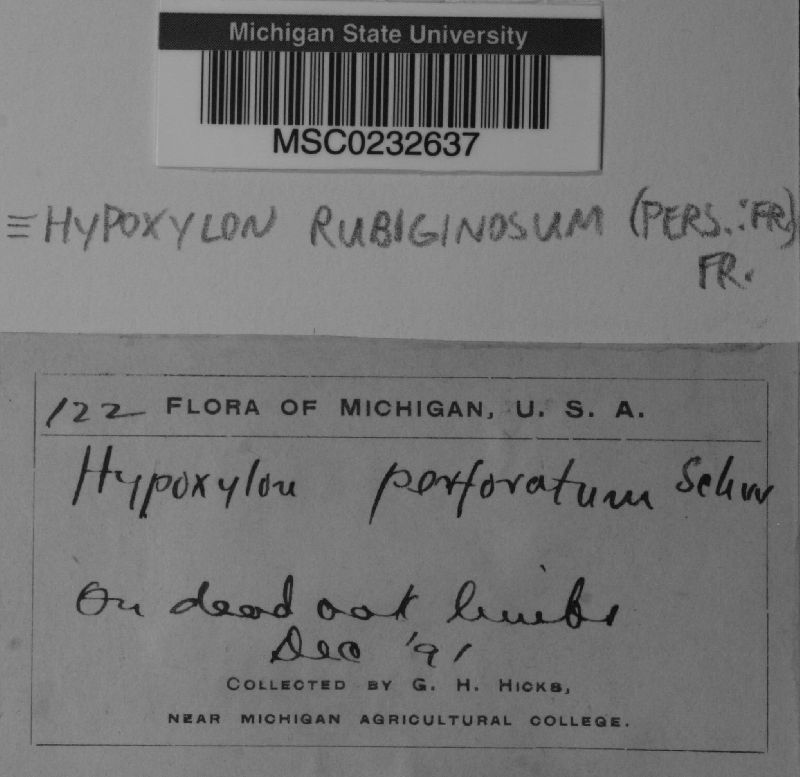 Michigan State University
MSC0232637
≡ HYPOXYLON RUBIGINOSUM (PERS.:FR)
FR.
122 FLORA OF MICHIGAN, U. S. A.
Hypoxylon perforatum Schw
On dead oak limbs
Dec '91
COLLECTED BY G. H. HICKS,
NEAR MICHIGAN AGRICULTURAL COLLEGE.